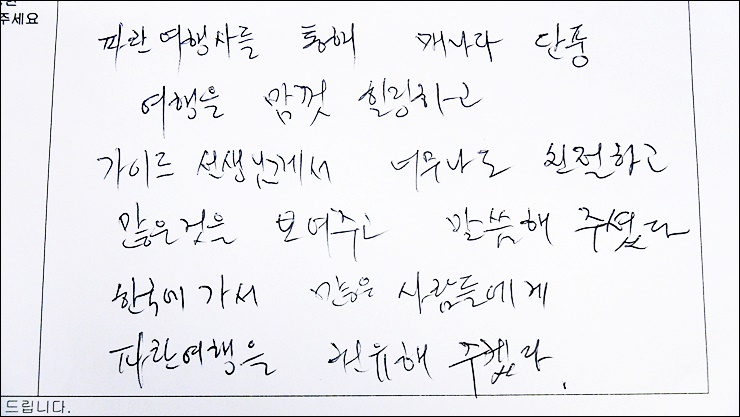 주세요
파란여행사를 통해 캐나다 단풍
여행을 맘껏 힐링하고
가이드 선생님께서 너무나도 친절하고
많은것을 보여주고 말씀해 주셨다
한국에 가서 많은 사람들에게
파란여행을 권유해 주겠다.
드립니다.